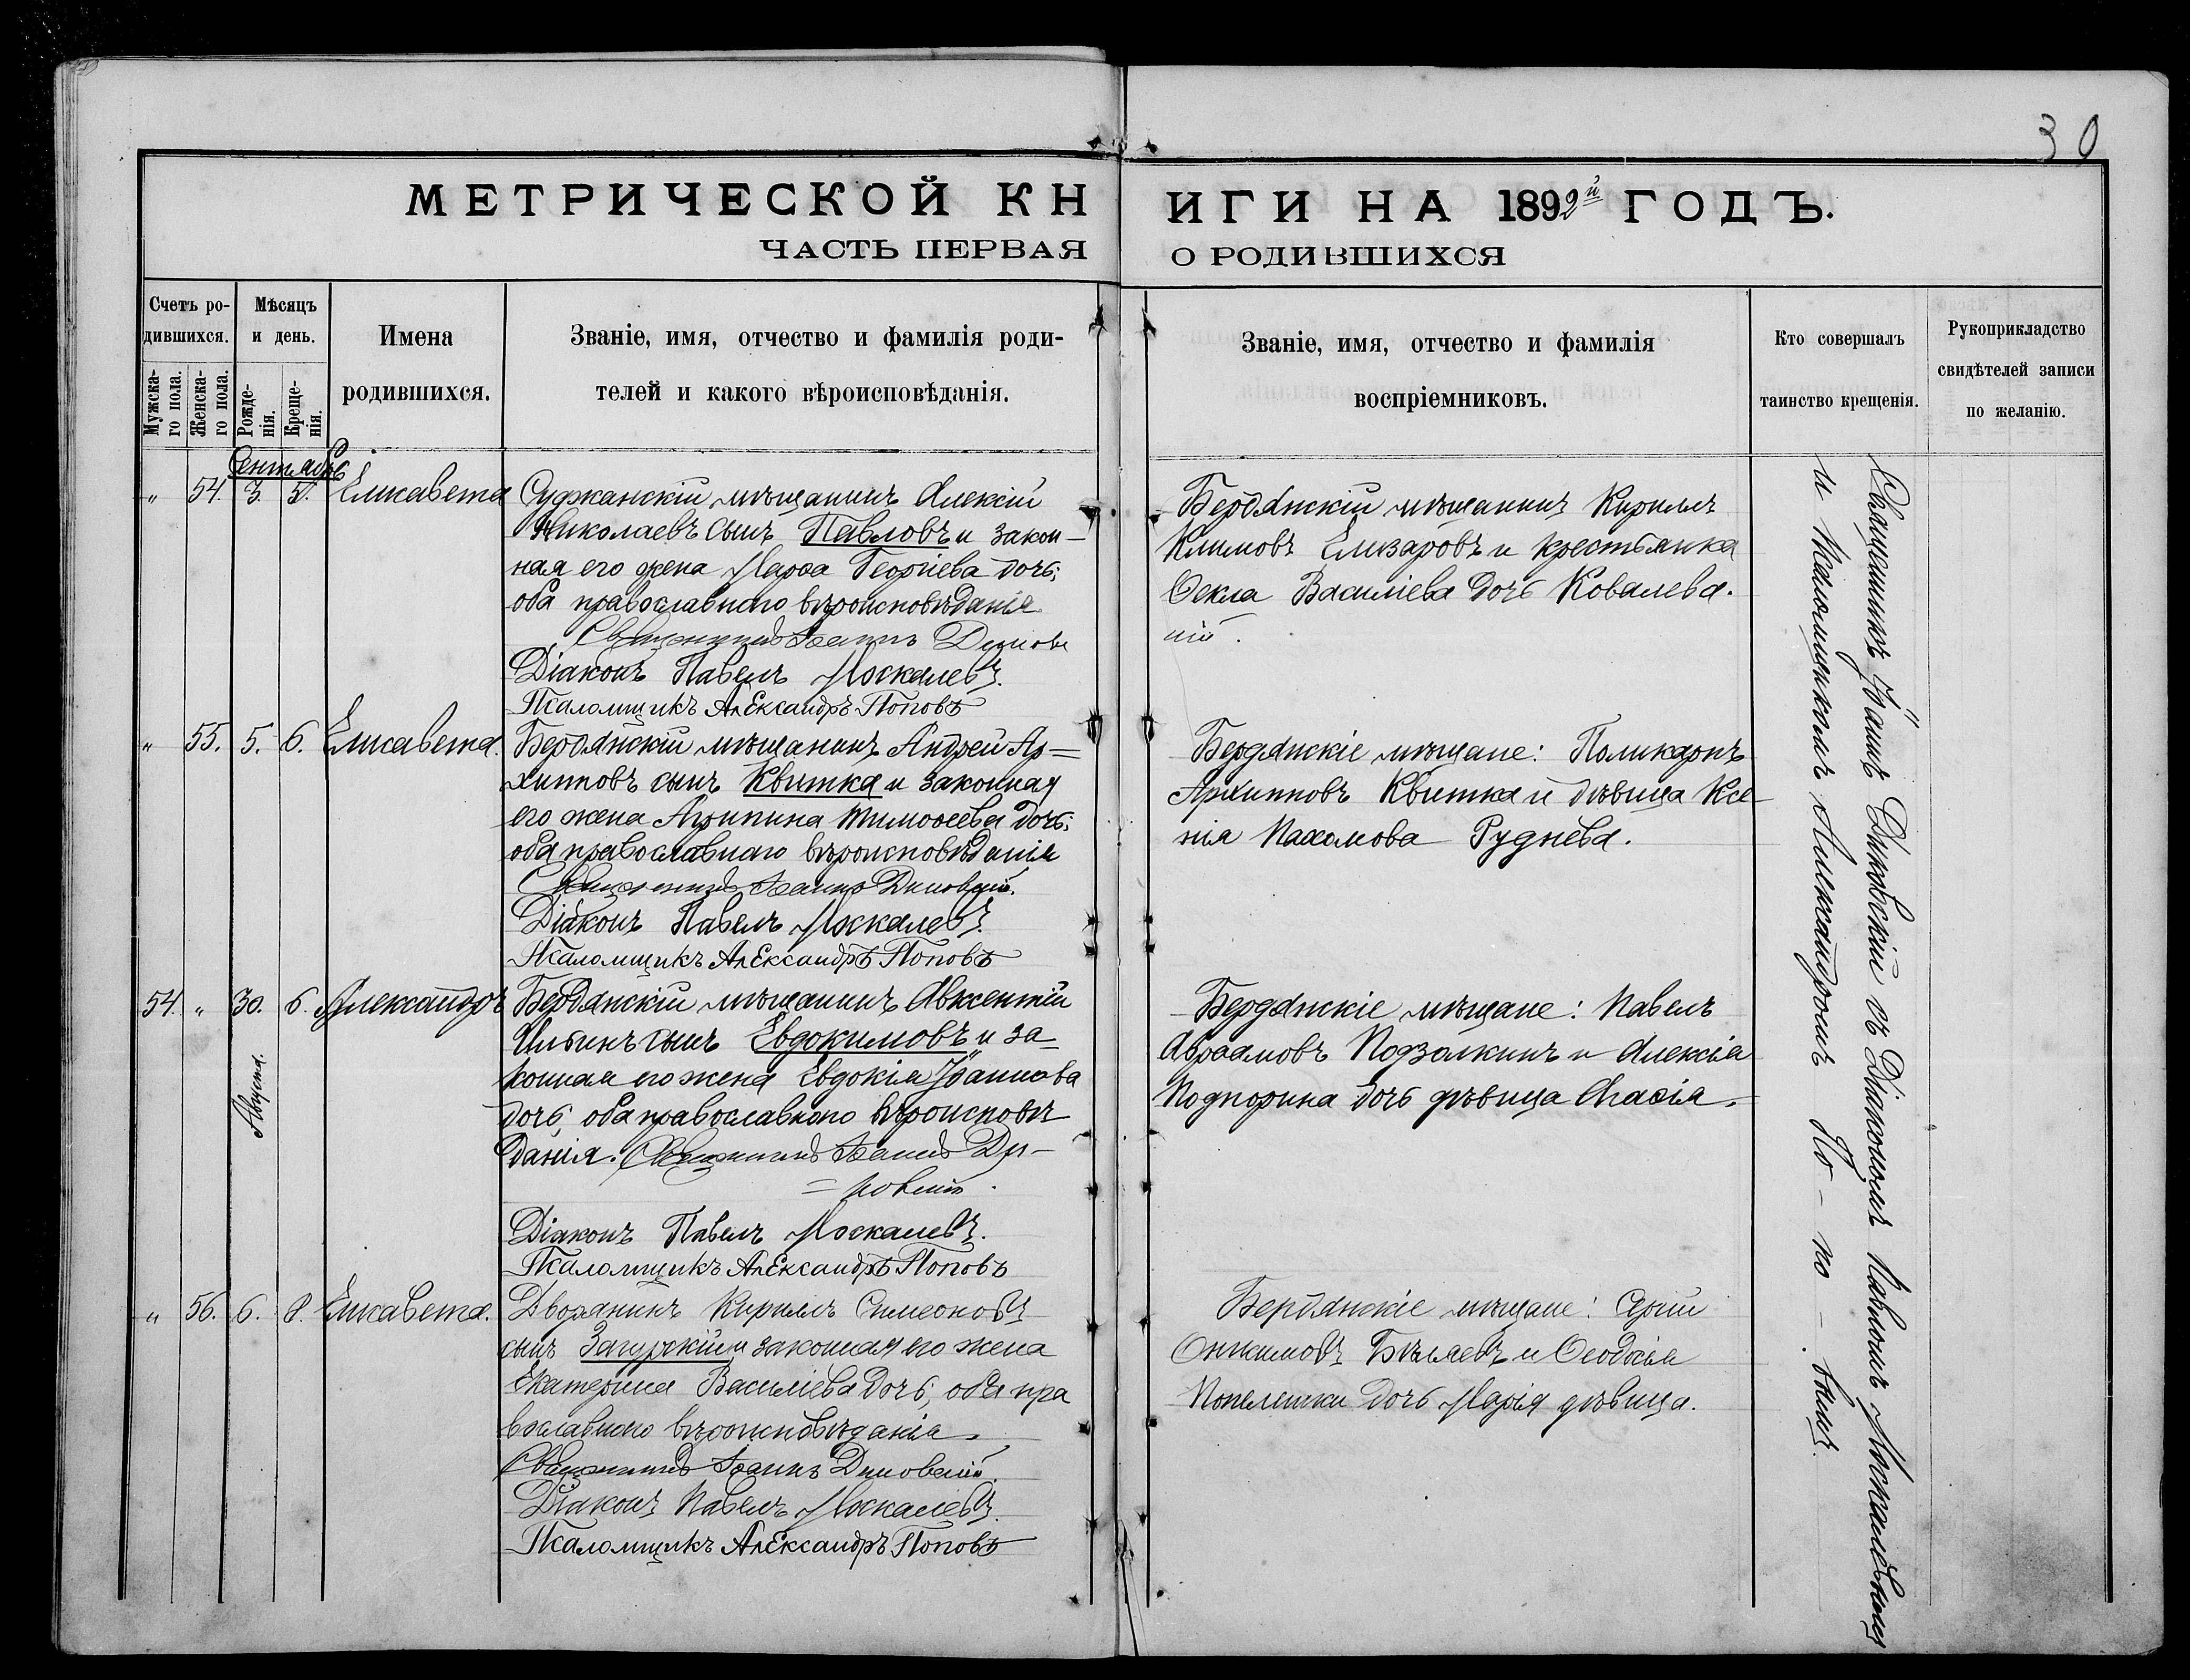 30
МЕТРИЧЕСКОЙ КНИГИ НА 1892й ГОДЪ.
ЧАСТЬ ПЕРВАЯ О РОДИВШИХСЯ
Счетъ ро-
дившихся.
Мужска-
го пола.
Женска-
го пола.
Мѣсяцъ
и день.
Рожде-
нія.
Креще-
нія.
Имена
родившихся.
Званіе, имя, отчество и фамилія роди-
телей и какого вѣроисповѣданія.
Званіе, имя, отчество и фамилія
воспріемниковъ.
Кто совершалъ
таинство крещенія.
Рукоприкладство
свидѣтелей записи
по желанію.
Сентябрь
" 54. 3. 5. Елисавета
Суджанскій мѣщанинъ Алексій
Николаевъ сынъ Павловъ и закон-
ная его жена Марѳа Георгіева дочь;
оба православнаго вѣроисповѣданія
Священникъ Іоаннъ Динов
Діаконъ Павелъ Москалевъ.
Псаломщикъ Александръ Поповъ
Бердянскій мѣщанинъ Кириллъ
Климовъ Елизаровъ и крестьянка
Ѳекла Василіева дочь Ковалева.
" 55. 5. 6. Елисавета.
Бердянскій мѣщанинъ Андрей Ар=
хипповъ сынъ Квитка и законная
его жена Агрипина Тимоѳеева дочь;
оба православнаго вѣроисповѣданія
Священникъ Іоаннъ Диновскій.
Діаконъ Павелъ Москалевъ.
Псаломщикъ Александръ Поповъ
Бердянскіе мѣщане: Поликарпъ
Архипповъ Квитка и дѣвица Ксе-
нія Пахомова Руднева.
54. " 30. 6. Александръ
Августа.
Бердянскій мѣщанинъ Авксентій
Ильинъ сынъ Евдокимовъ и за-
конная его жена Евдокія Іоаннова
дочь, оба православного вѣроисповѣ
данія. Священникъ Іоаннъ Ди-
= новскій.
Діаконъ Павелъ Москалевъ.
Псаломщикъ Александръ Поповъ
Бердянскіе мѣщане: Павелъ
Авраамовъ Подзолкинъ и Алексія
Подпорина дочь дѣвица
" 56. 6. 8. Елисавета.
Дворянинъ Кириллъ Симеоновъ
сынъ Загурскій и законная его жена
Екатерина Василіева дочь, оба пра
вославнаго вѣроисповѣданія.
Священникъ Іоаннъ Диновскій.
Діаконъ Павелъ Москалевъ.
Псаломщикъ Александръ Поповъ
Бердянскіе мѣщане:
Онисимовъ Бѣляевъ и Ѳеодосія
дочь Марія дѣвица.
Священникъ Іоаннъ Диновскій съ Діакономъ Павломъ Москалевымъ
и Псаломщикомъ Александромъ По - по - вымъ.